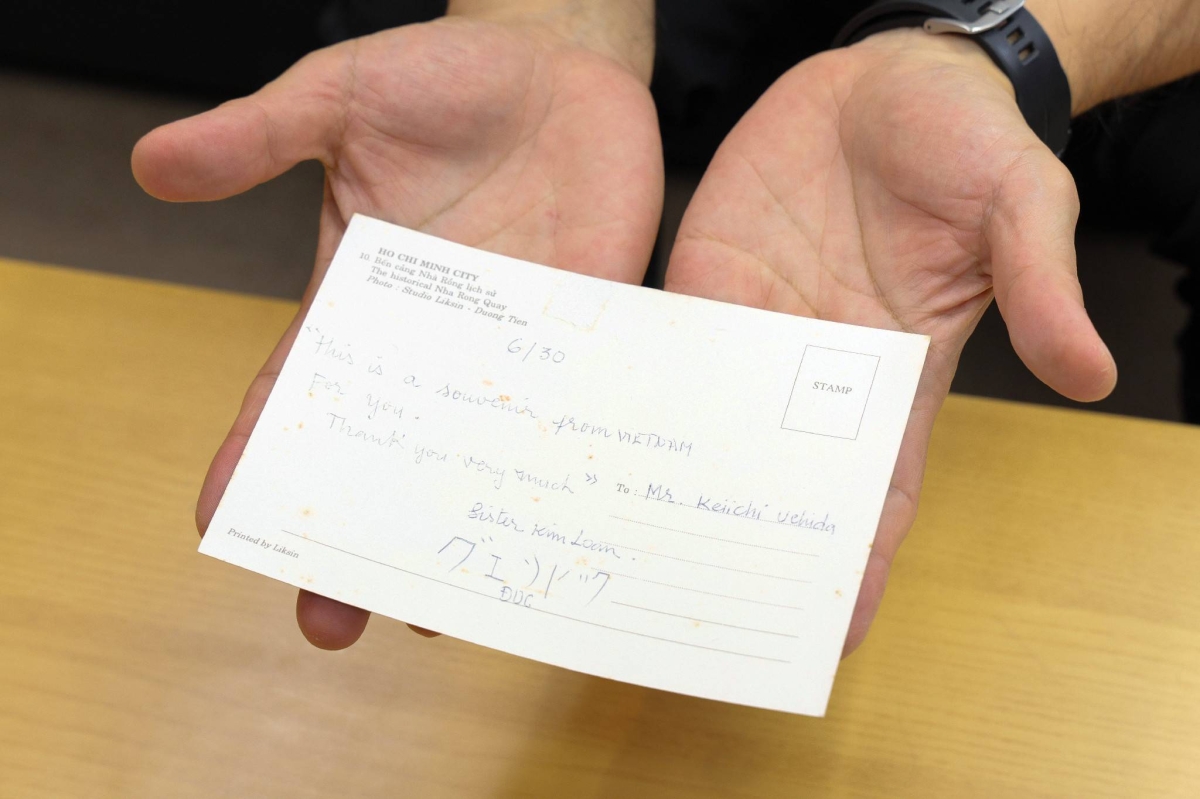 HO CHI MINH CITY
10. Bến cảng Nhà Rồng lịch sử
The historical Nha Rong Quay
Photo : Studio Liksin - Duong Tien
6/30
STAMP
"This is a souvenir from VIETNAM
For you.
Thank you very much »
To : Mr. Keiichi Uchida
Sister Kim Loan.
グエンドック
ĐUC
Printed by Liksin